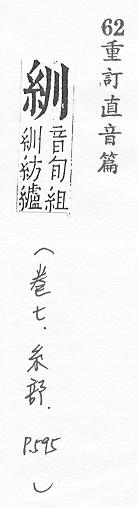 62重訂直音篇
紃
音旬組
紃紡纑
(卷七.糸部.P.595)